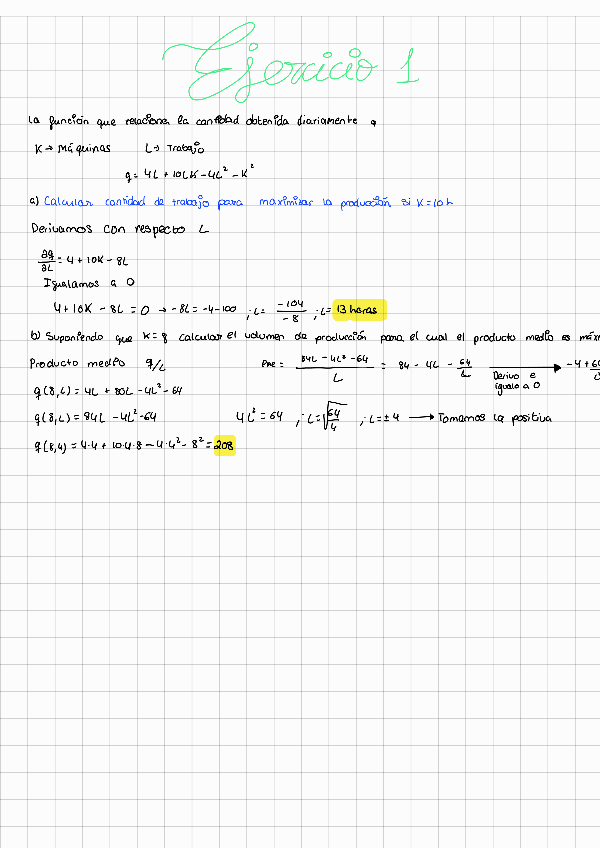 Ejercicio 1
La función que relaciona la cantidad obtenida diariamente q
K → Máquinas L → Trabajo
q = 4L + 10LK - 4L² - K²
a) Calcular cantidad de trabajo para maximizar la producción si K=10h
Derivamos con respecto L
∂q/∂L = 4 + 10K - 8L
Igualamos a 0
4 + 10K - 8L = 0 → -8L = -4-100 ; L = -104/-8 ; L = 13 horas
b) Suponiendo que K=8 calcular el volumen de producción para el cual el producto medio es máx
Producto medio q/L Pme = 84L - 4L² - 64/L = 84 - 4L - 64/L Derivo e igualo a 0 → -4 + 6
q(8,L) = 4L + 80L - 4L² - 64
q(8,L) = 84L - 4L² - 64 4L² = 64 ; L = √64/4 ; L = ±4 → Tomamos la positiva
q(8,4) = 4·4 + 10·4·8 - 4·4² - 8² = 208